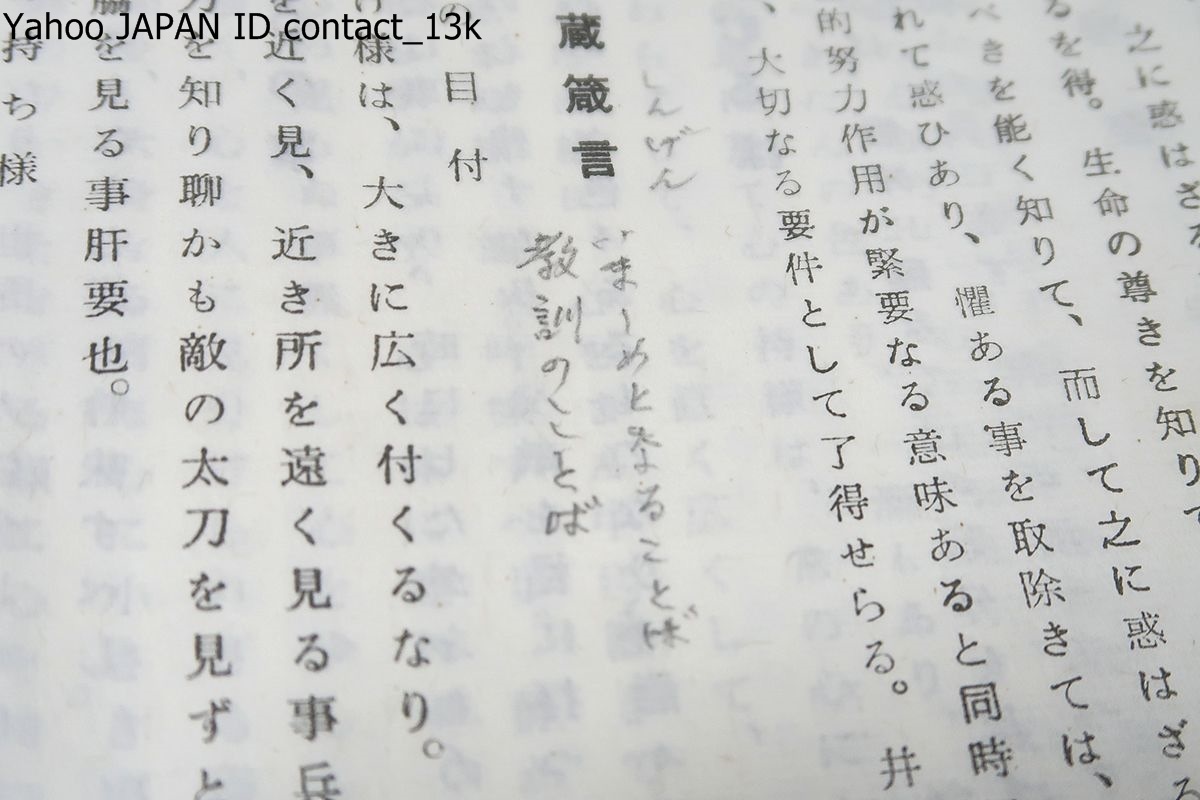 Yahoo JAPAN ID contact_13k
之に惑はざ
るを得。生命の尊きを知りて
べきを能く知りて、而して之に惑はざる
れて惑ひあり、懼ある事を取除きては、
的努力作用が緊要なる意味あると同時
、大切なる要件として了得せらる。井
しんげん
蔵箴言
いましめとなることば
教訓のことば
の目付
け様は、大きに広く付くるなり。
を近く見、近き所を遠く見る事兵
刀を知り聊かも敵の太刀を見ずと
脇を見る事肝要也。
持ち様